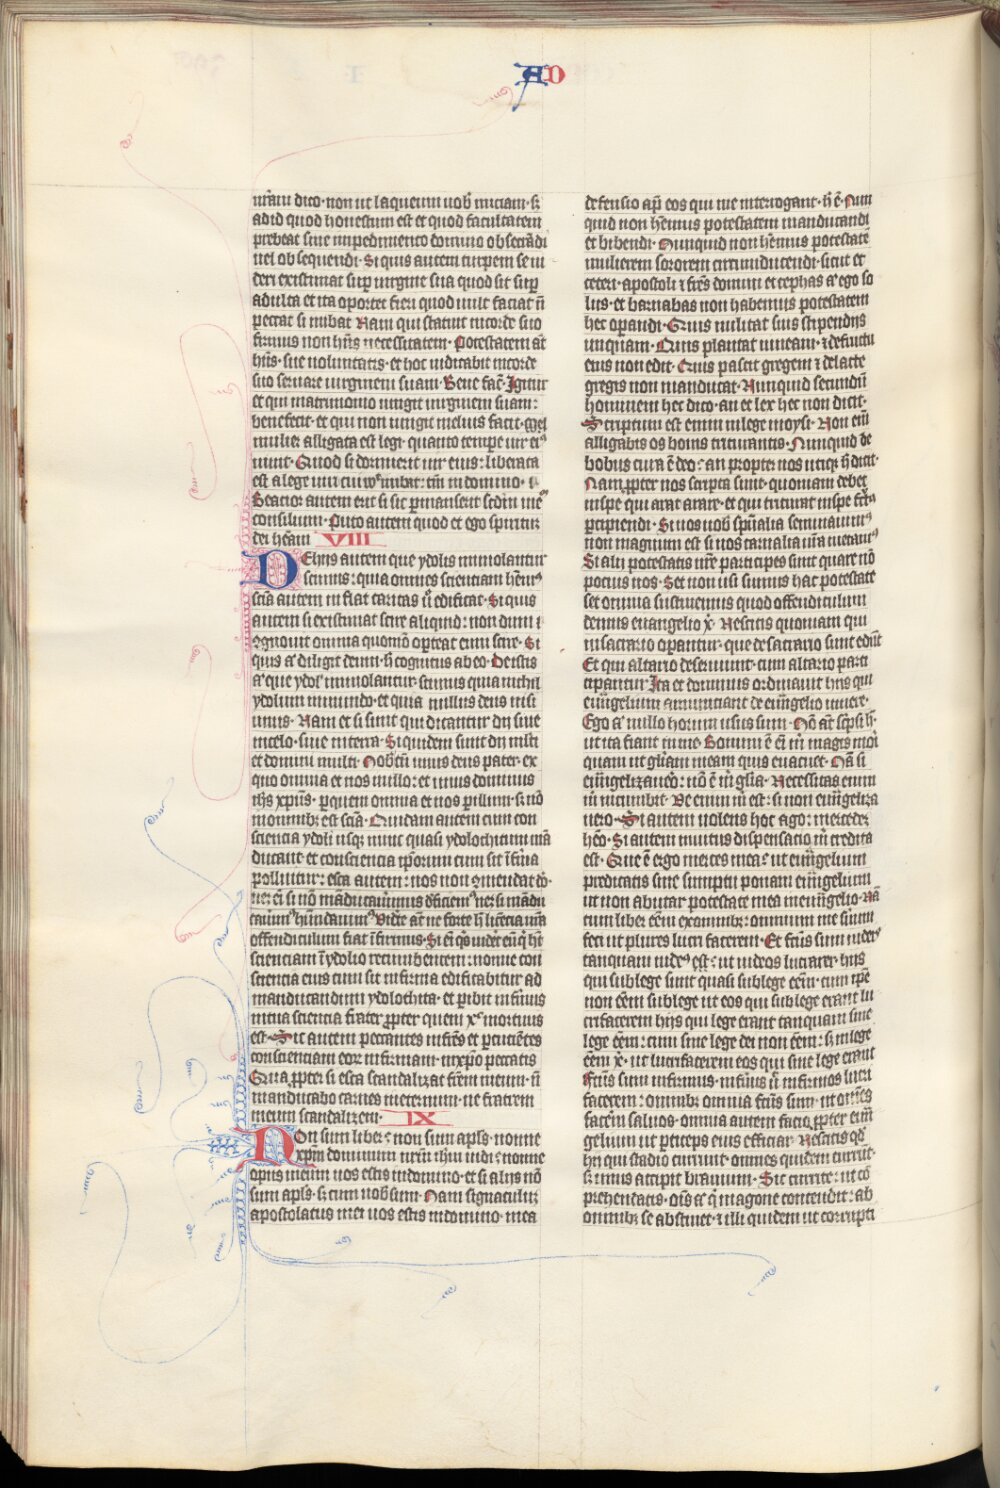 AD
ur̄am dico· non ut laqueum uob̄ iniciam· s̄
ad id quod honestum est et quod facultatem
prebeat sine impedimento domino obsec̄ādi
uel obsequendi· Si quis autem turpem se ui
deri existimat sup̄ uirgine sua quod sit sup̄
adulta et ita oportet fieri quod uult faciat n̄
peccat si nubat Nam qui statuit in corde suo
firmus non hn̄s necessitatem· Potestatem at̄
hn̄s· sue uoluntatis· et hoc iudicabit in corde
suo seruare uirginem suam· Bene fac̄· Igitur
et qui matrimonio iungit uirginem suam:
benefecit· et qui non iungit melius facit·
mulier alligata est legi· quanto tempe uir eiꝰ
uiuit· Quod si dormierit uir eius: liberata
est a lege
Beatior autem erit si sic p̄manserit scdm̄ meū
consilium· Puto autem quod et ego spiritum
dei hēam VIII
De hijs autem que ydolis immolantur
scimus: quia omnes scientiam hēmꝰ
sciā autem inflat caritas ū edificat· Si quis
autem se existimat scire aliquid: non dum
cognouit omnia quomō op̄teat eum scire· Si
quis a͛ diligit deum· h̄ cognitus ab eo· De istis
a͛ que ydol̓ immolantur· scimus quia nichil
ydolum in mundo· et quia nullus deus nisi
unus· Nam et si sunt qui dicantur dij siue
in celo· siue in terra· Siquidem sunt dij mlt̄i
et domini multi· Nob̄ tn̄ unus deus pater· ex
quo omnia et nos in illo: et unus dominus
ih̄s xp̄us· p̄ quem omnia et nos p̄ illum· s̄ nō
in omnibꝫ est sciā· Quidam autem cum con
sciencia ydoli usqꝫ nunc quasi ydolothitum mā
ducant· et consciencia ip̄orum cum sit īfirma
polluitur: esca autem: nos non ꝯmendat dō·
neqꝫ
offendiculum fiat īfirmis· Si
scienciam ī ydolio recumbentem: nonne con
sciencia eius cum sit infirma edificabitur ad
manducandum ydolothita· et p̄ibit infirmus
in tua sciencia frater p̄pter quem xp̄c mortuus
est· Sic autem peccantes in fr̄es et p̄cucietes
conscienciam eorꝫ infirmam· in xp̄o peccatis
Qua p̄pter si esca scandalizat fr̄em meum· n̄
manducabo carnes in eternum· ne fratrem
meum scandalizem· IX
Non sum liber: non sum apl̄s· nonne
xp̄m dominum nr̄m ih̄m uidi: nonne
opus meum uos estis in domino· et si alijs nō
sum apl̄s· s̄ tum uob̄ sum· Nam signaculū
apostolatus mei uos estis in domino· mea
defensio ap̄ eos qui me interrogant· h̄ ē· Nun
quid non hēmus potestatem manducandi
et bibendi· Nunquid non hēmus potestatē
mulierem sororem circumducendi· sicut et
ceteri· apostoli ⁊ fr̄es domini et cephas a͛ ego so
lus· et barnabas non habemus potestatem
hec operandi· Quis militat suis stipendijs
unquam· Quis plantat uineam· ⁊ de fructu
eius non edit· Quis pascit gregem ⁊ de lacte
gregis non manducat· Nunquid secundū
hominem hec dico· an et lex hec non dicit·
Scriptum est enim in lege moysi· Non em̄
alligabis os boui trituranti· Nunquid de
bobus cura ē deo: an propter nos utiqꝫ h̄ dicit·
Nam p̄pter nos scripta sunt· quoniam debet
in spe qui arat arare· et qui triturat in spe fruc̄
p̄cipiendi· Si nos uob̄ sp̄ualia seminauimꝰ
non magnum est si nos carnalia ur̄a metamꝰ
Si alij potestatis ur̄e participes sunt quare nō
pocius nos· Set non usi sumus hac potestate
set omnia sustinemus quod offendiculum
demus euangelio x̄· Nescitis quoniam qui
in sacrario operantur· que de sacrario sunt edūt
Et qui altario deseruiunt· cum altario parti
cipantur Ita et dominus ordinauit hijs qui
euūgelium annunciant de euūgelio uiuere·
Ego a͛ nullo horum usus sum· Nō at̄ scp̄si h̄·
ut ita fiant in me Bonum ē em̄ m̄ magis mori
quam ut gl̄iam meam quis euacuet· Nā si
euūgelizauero: nō ē m̄ gl̄ia· Necessitas enim
m̄ incumbit· Ve enim m̄ est: si non euūgeliza
uero· Si autem uolens hoc ago: mercedē
hēo· Si autem inuitus dispensacio m̄ credita
est· Que ē ergo merces mea: ut euūgelium
predicans sine sumptu ponam euūgelium
ut non abutar potestate mea in euūgelio· Nā
cum liber eēm ex omnibꝫ: omnium me s̄uum
feci ut plures luci facerem· Et fc̄us sum iudeꝰ
tanquam iudeꝰ est: ut iudeos lucrarer· hijs
qui sub lege sunt quasi sub lege eēm· cum ip̄e
non eēm sub lege ut eos qui sub lege erant lu
crifacerem hijs qui lege erant tanquam sine
lege eēm: cum sine lege dei non eēm: s̄ in lege
eēm x̄· ut lucrifacerem eos qui sine lege erant
Fc̄us sum infirmus· infirmis ut infirmos lucri
facerem: omnibꝫ omnia fc̄us sum· ut om̄es
facēm saluos· omnia autem facio p̄pter euū
gelium ut p̄ticeps eius efficiar· Nescitis qd̄
hij qui stadio currunt· omnes quidem currūt·
s̄ unus accipit brauium· Sic currite: ut cō
prehendatis· oīs a͛ q̄ in agone contendit: ab
omnibꝫ se abstinet· ⁊ illi quidem ut corrupti